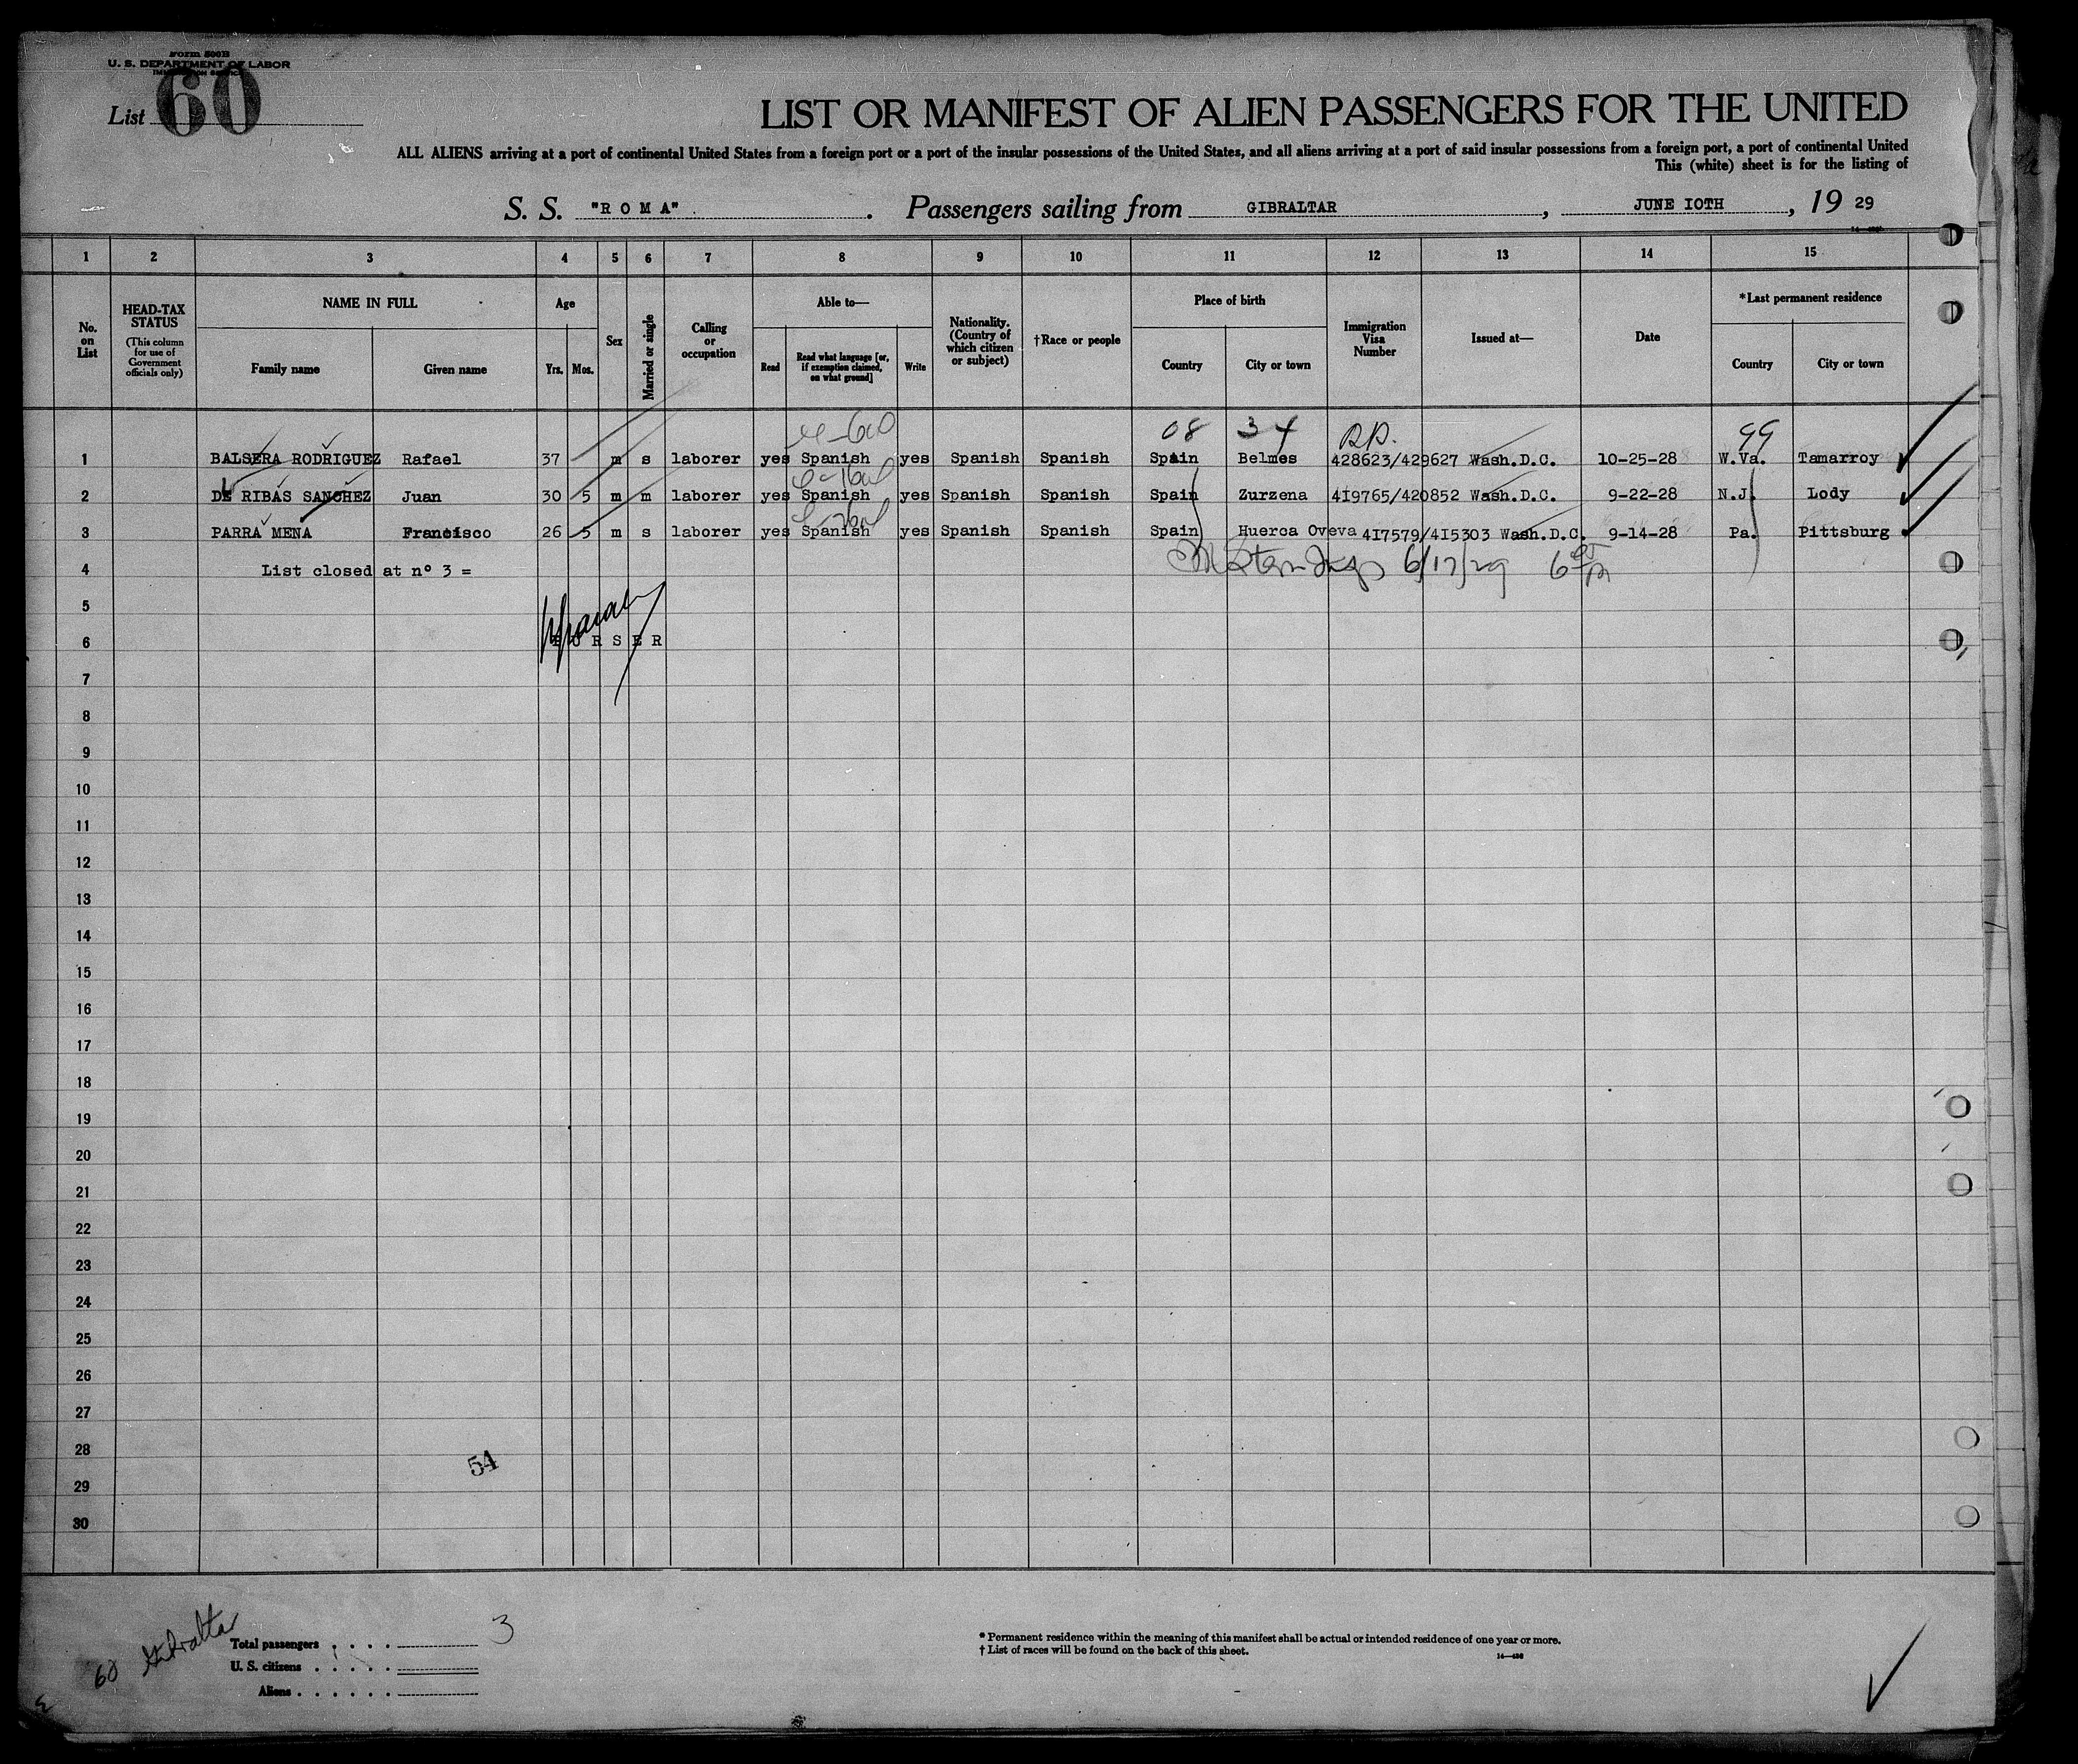 Form 500B
U. S. DEPARTMENT OF LABOR
IMMIGRATION SERVICE
List 60
LIST OR MANIFEST OF ALIEN PASSENGERS FOR THE UNITED
ALL ALIENS arriving at a port of continental United States from a foreign port or a port of the insular possessions of the United States, and all aliens arriving at a port of said insular possessions from a foreign port, a port of continental United
This (white) sheet is for the listing of
S. S. "R O M A" . Passengers sailing from GIBRALTAR, JUNE IOTH, 19 29
1 2 3 4 5 6 7 8 9 10 11 12 13 14 15
No. on List
HEAD-TAX STATUS (This column for use of Government officials only)
NAME IN FULL
Family name Given name
Age
Yrs. Mos.
Sex
Married or single
Calling or occupation
Able to—
Read Read what language [or, if exemption claimed, on what ground] Write
Nationality. (Country of which citizen or subject)
†Race or people
Place of birth
Country City or town
Immigration Visa Number
Issued at—
Date
*Last permanent residence
Country City or town
08 34 99
1 BALSERA RODRIGUEZ Rafael 37 m s laborer yes Spanish yes Spanish Spanish Spain Belmes 428623/429627 Wash.D.C. 10-25-28 W.Va. Tamarroy
2 DE RIBAS SANCHEZ Juan 30 5 m m laborer yes Spanish yes Spanish Spanish Spain Zurzena 4I9765/420852 Wash.D.C. 9-22-28 N.J. Lody
3 PARRA MENA Francisco 26 5 m s laborer yes Spanish yes Spanish Spanish Spain Huerca Oveva 4I7579/4I5303 Wash.D.C. 9-14-28 Pa. Pittsburg
4 List closed at nº 3 =
6/17/29
5
6 P U R S E R
7
8
9
10
11
12
13
14
15
16
17
18
19
20
21
22
23
24
25
26
27
28
54
29
30
60 Gibraltar
Total passengers . . . . 3
U. S. citizens . . . . .
Aliens . . . . . .
* Permanent residence within the meaning of this manifest shall be actual or intended residence of one year or more.
† List of races will be found on the back of this sheet.